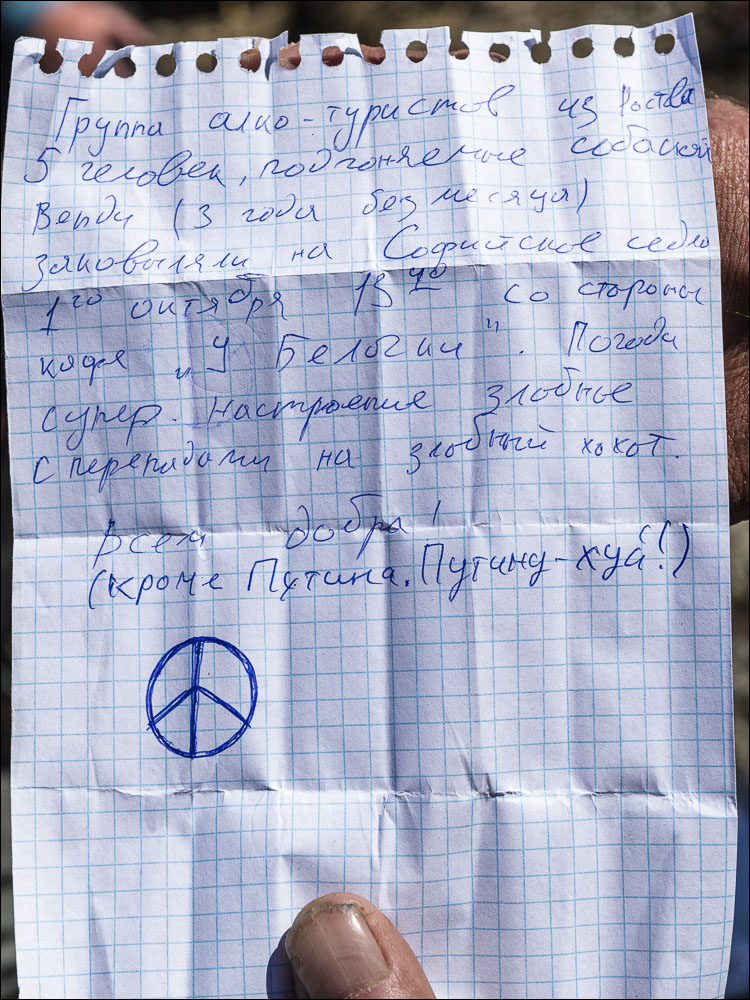 Группа алко-туристов из Роства
5 человек, подгоняемые собакой
Венди (3 года без месяца)
заковыляли на Софийское седло
1го октября 1340 со стороны
кафе „У Белогии". Погода
супер. Настроение злобное
с перепадами на злобный хохот.
Всем добра!
(кроме Путина. Путину-хуй!)